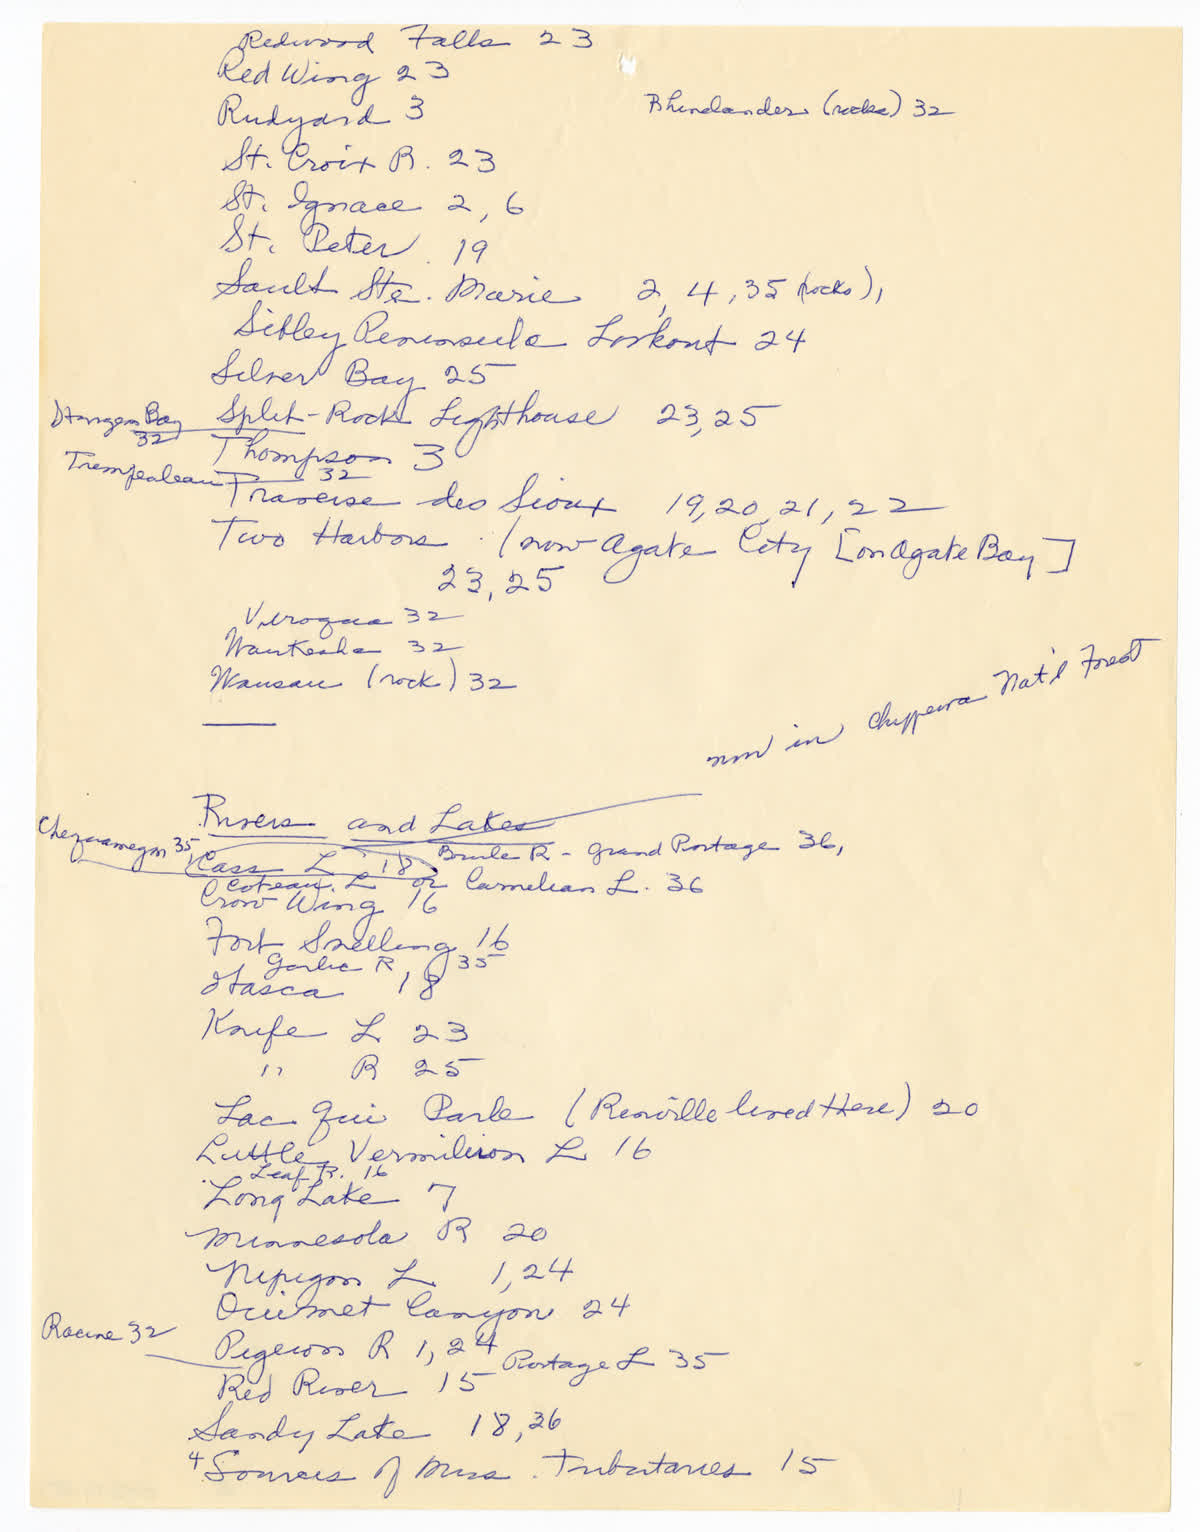 Redwood Falls 23
Red Wing 23
Rhinelander (rocks) 32
Rudyard 3
St. Croix R. 23
St. Ignace 2, 6
St. Peter 19
Sault Ste. Marie 2, 4, 35 (rocks),
Sibley Peninsula Lookout 24
Silver Bay 25
Sturgeon Bay 32
Split-Rock Lighthouse 23, 25
Thompson 3
Trempealeau 32
Traverse des Sioux 19, 20, 21, 22
Two Harbors (now Agate City [on Agate Bay]
23, 25
Viroqua 32
Waukesha 32
Wausau (rock) 32
now in Chippewa Nat'l Forest
Rivers and Lakes
Chequamegon 35
Brule R - Grand Portage 36,
Cass L 18
Coteau L or Carnelian L. 36
Crow Wing 16
Fort Snelling 16
Garlic R 35
Itasca 18
Knife L 23
" R 25
Lac Qui Parle (Renville lived there) 20
Little Vermilion L 16
Leaf R. 16
Long Lake 7
Minnesota R 20
Nipigon L 1, 24
Ouimet Canyon 24
Racine 32
Pigeon R 1, 24
Portage L 35
Red River 15
Sandy Lake 18, 36
Sources of Miss. Tributaries 15